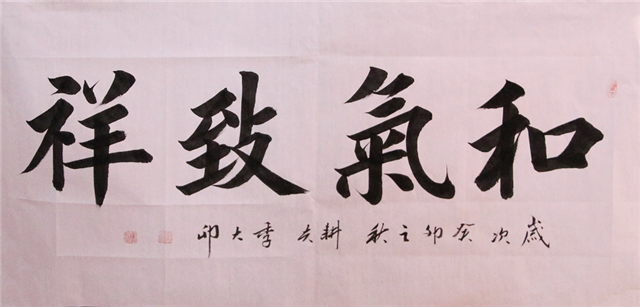 和氣致祥
歲次癸卯之秋 耕 季大